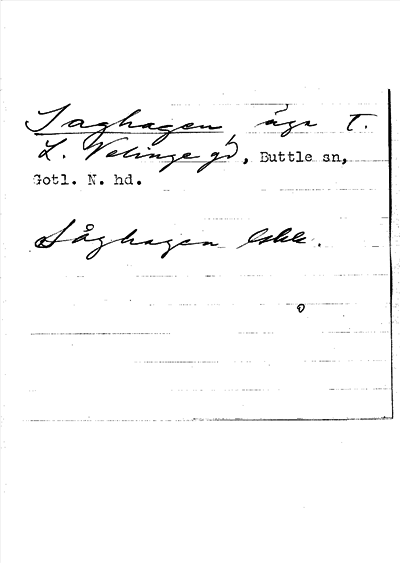 Saghagen, äga t.
L. Velinge gd, Buttle sn,
Gotl. N. hd.
Såghagen